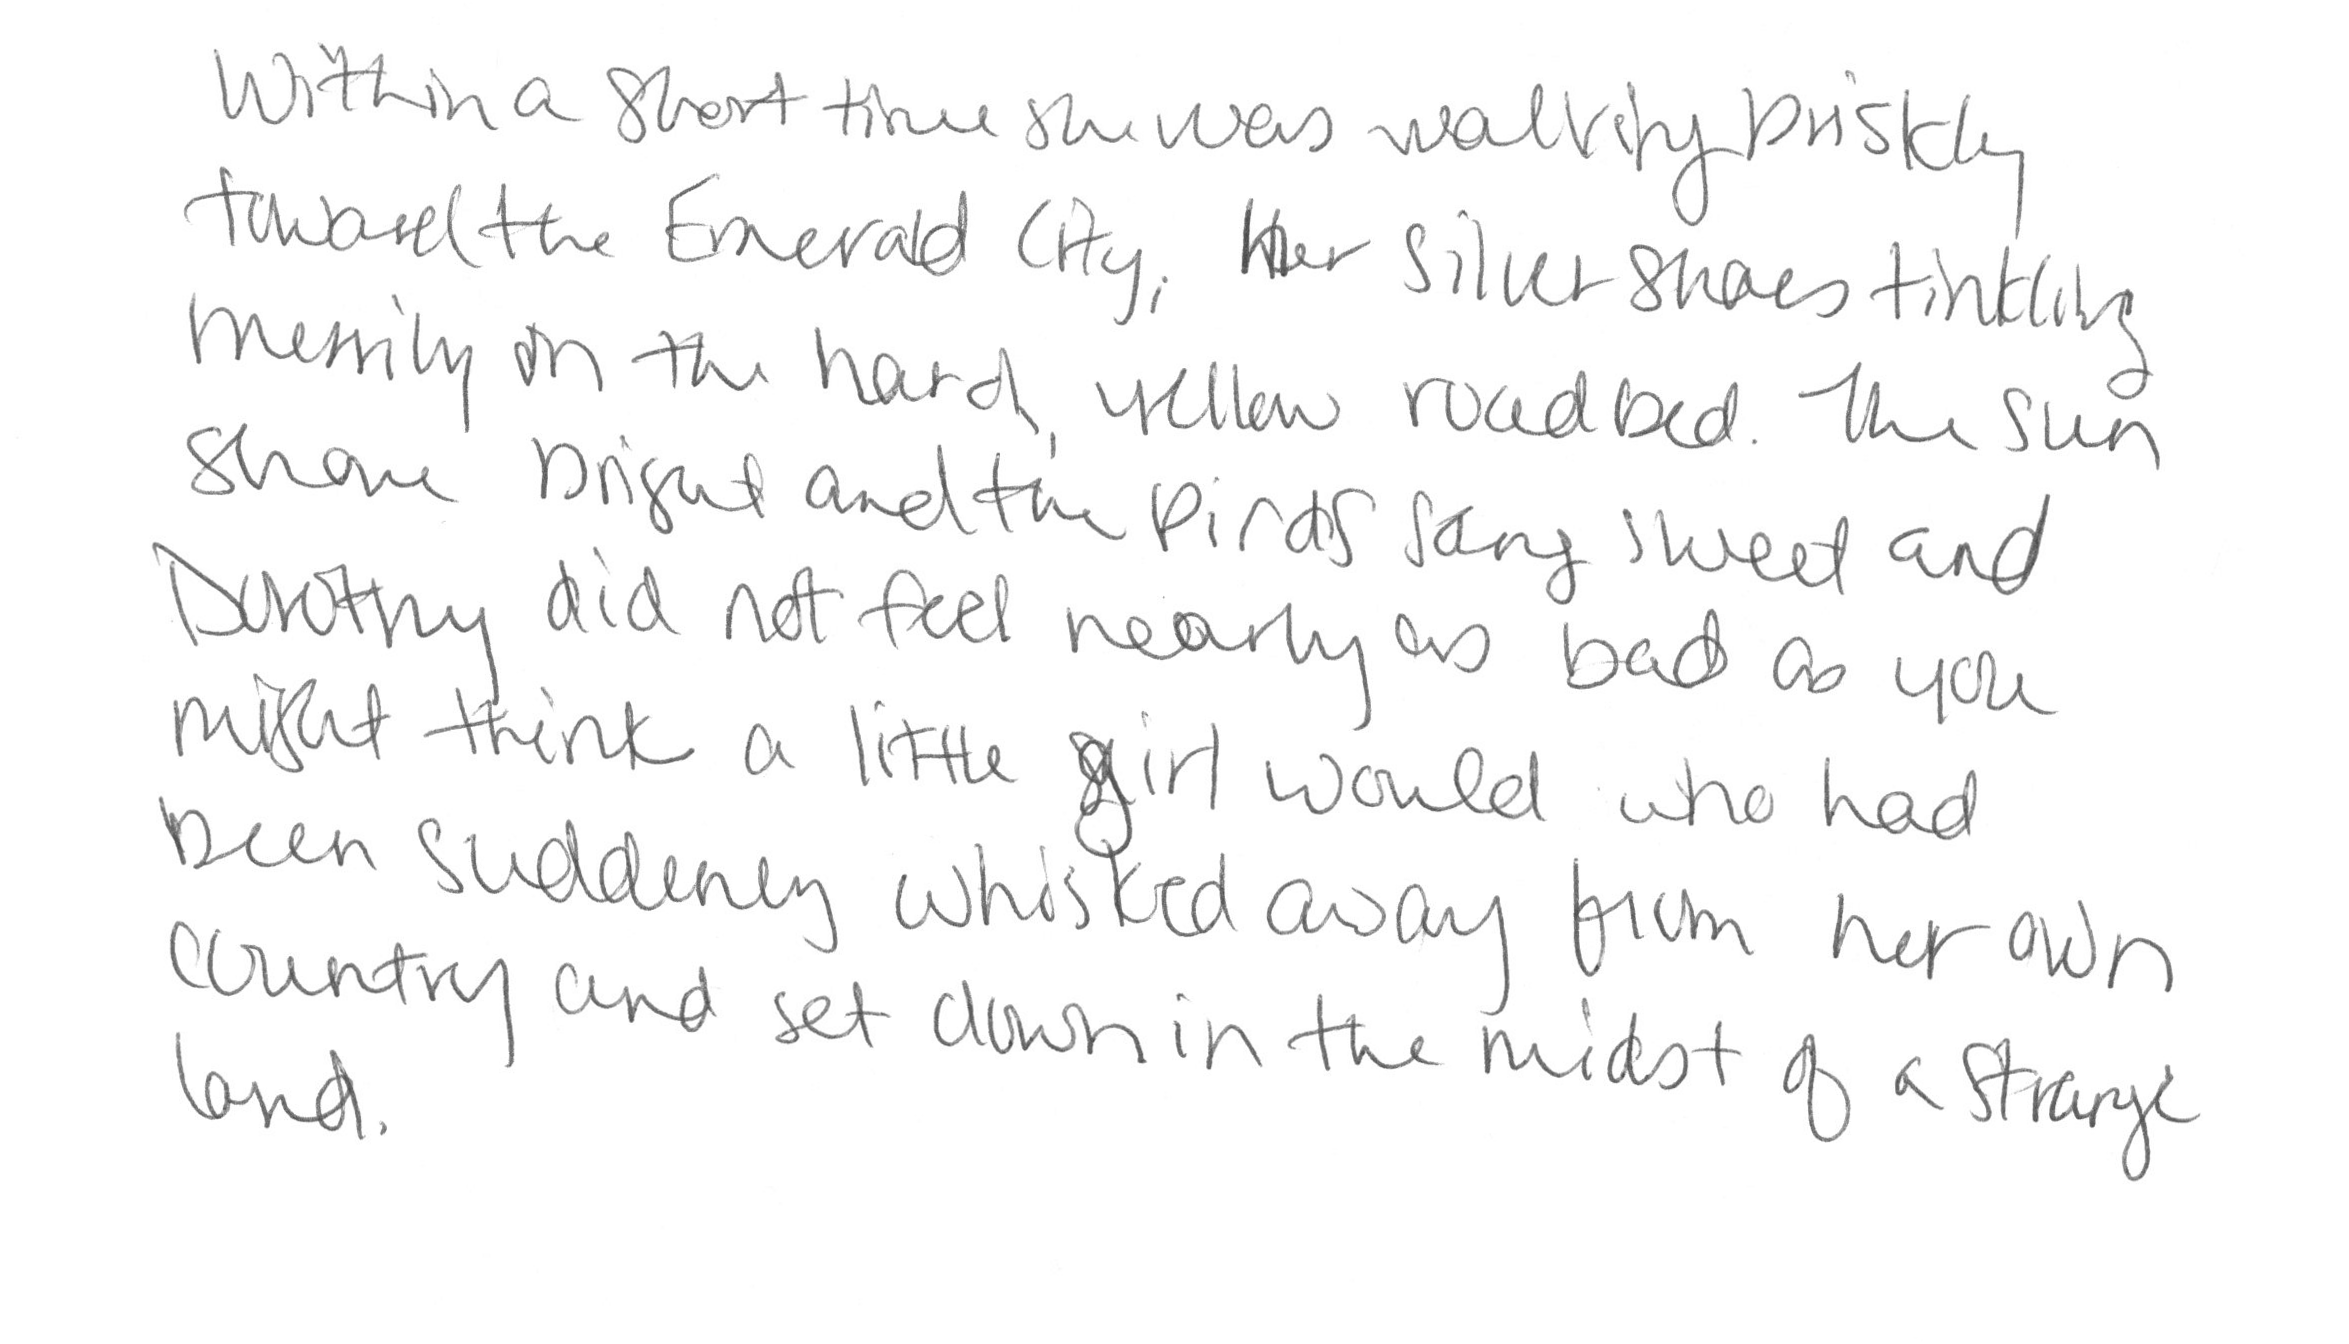 Within a short time she was walking briskly
toward the Emerald City, Her silver shoes tinkling
merrily on the hard, yellow roadbed. The sun
shone bright and the birds sang sweet and
Dorothy did not feel nearly as bad as you
might think a little girl would who had
been suddenly whisked away from her own
country and set down in the midst of a strange
land.